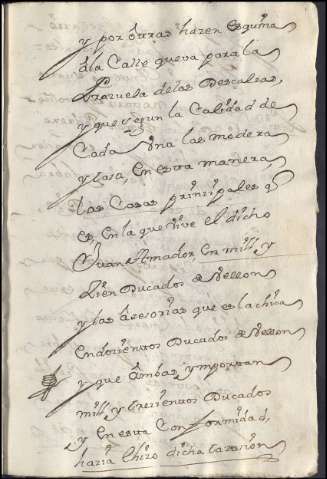 y por otras hazen esquina
a la Calle que va para la
Plazuela de las Descalzas,
y que segun la Calidad de
Cada una las modera
y tasa, en esta manera
las Casas principales q
es, en la que vive el dicho
Juan Amador en mill y
Zien Ducados de vellon
y las acesorias que es la chica
en docientos Ducados de vellon
y que ambas ymportan
mill y trecientos Ducados
y en esta Conformidad,
hazia e hizo dicha tazasion